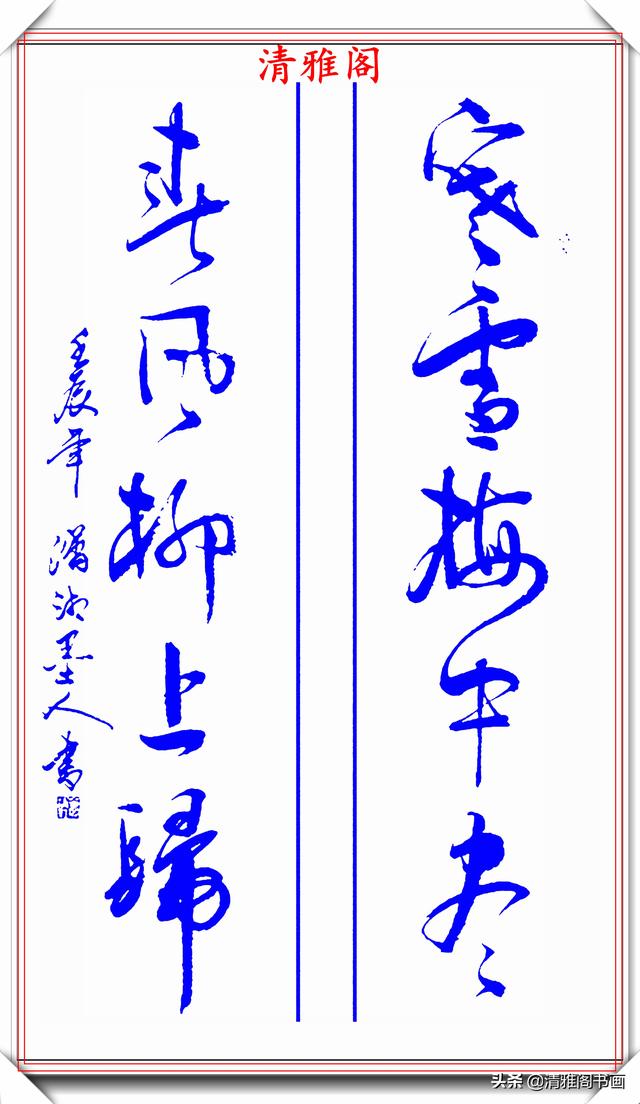 清雅阁
寒雪梅中尽
春风柳上歸
壬辰年 潇湘墨人书
头条 @清雅阁书画